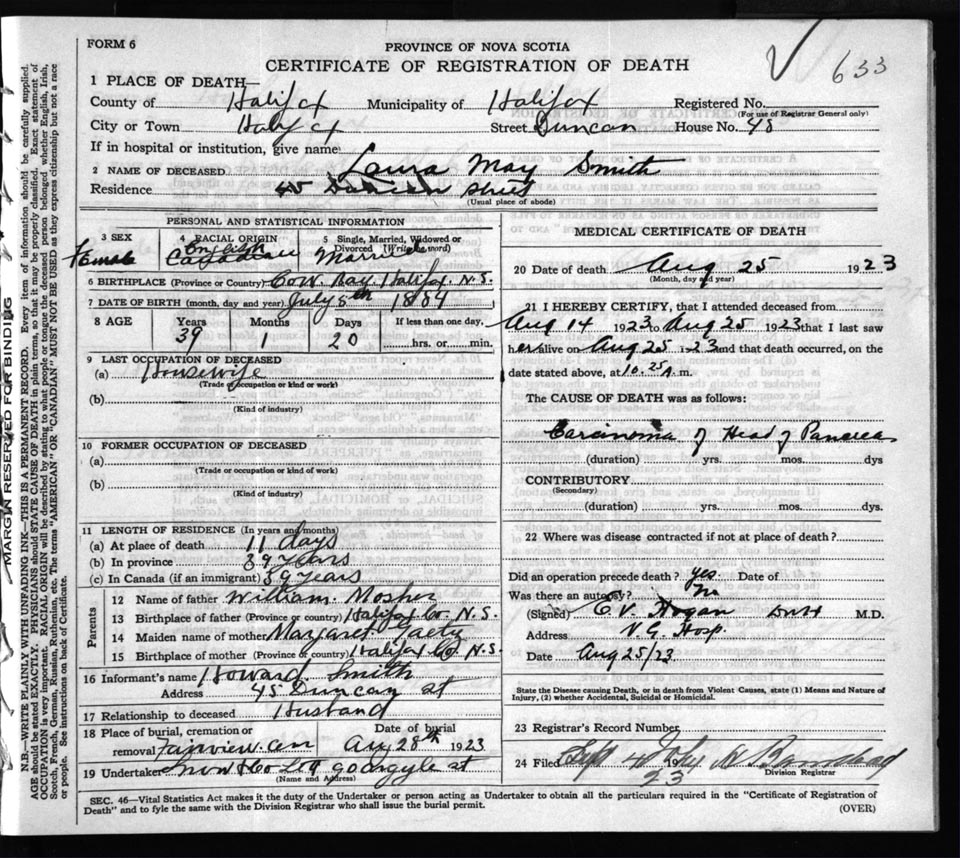 FORM 6
633
PROVINCE OF NOVA SCOTIA
CERTIFICATE OF REGISTRATION OF DEATH
1 PLACE OF DEATH—
County of Halifax Municipality of Halifax Registered No.
(For use of Registrar General only)
City or Town Halifax Street Duncan House No. 48
If in hospital or institution, give name
2 NAME OF DECEASED Laura May Smith
Residence 45 Duncan Street
(Usual place of abode)
PERSONAL AND STATISTICAL INFORMATION
3 SEX 4 RACIAL ORIGIN 5 Single, Married, Widowed or Divorced (Write word)
Female English Canadian Married
6 BIRTHPLACE (Province or Country) Cow Bay. Halifax. N.S.
7 DATE OF BIRTH (month, day and year) July 5th 1884
8 AGE Years Months Days If less than one day,
39 1 20 hrs. or min.
9 LAST OCCUPATION OF DECEASED
(a) Housewife
(Trade occupation or kind or work)
(b)
(Kind of industry)
10 FORMER OCCUPATION OF DECEASED
(a)
(Trade occupation or kind or work)
(b)
(Kind of industry)
11 LENGTH OF RESIDENCE (In years and months)
(a) At place of death 11 days
(b) In province 39 years
(c) In Canada (if an immigrant) 39 years
Parents
12 Name of father William Mosher
13 Birthplace of father (Province or country) Halifax Co. N.S.
14 Maiden name of mother Margaret Gaetz
15 Birthplace of mother (Province or country) Halifax Co N.S.
16 Informant's name Howard Smith
Address 45 Duncan St
17 Relationship to deceased Husband
18 Place of burial, cremation or removal Fairview Cem Date of burial Aug 28th 1923
19 Undertaker Snow & Co Ltd 90 argyle st
(Name and Address)
MEDICAL CERTIFICATE OF DEATH
20 Date of death Aug 25 1923
(Month, day and year)
21 I HEREBY CERTIFY, that I attended deceased from
Aug 14 1923 to Aug 25 1923 that I last saw
her alive on Aug 25 1923 and that death occurred, on the
date stated above, at 10.25 A. m.
The CAUSE OF DEATH was as follows:
Carcinoma of Head of Pancreas
(duration) yrs. mos. dys
CONTRIBUTORY
(Secondary)
(duration) yrs. mos. dys.
22 Where was disease contracted if not at place of death?
Did an operation precede death? yes Date of
Was there an autopsy? no
(Signed) C. V. Hogan M.D.
Address V.G. Hosp.
Date Aug 25/23
State the Disease causing Death, or in death from Violent Causes, state (1) Means and Nature of
Injury, (2) whether Accidental, Suicidal or Homicidal.
23 Registrar's Record Number
24 Filed Sept 4 23 John
Division Registrar
SEC. 46—Vital Statistics Act makes it the duty of the Undertaker or person acting as Undertaker to obtain all the particulars required in the "Certificate of Registration of
Death" and to fyle the same with the Division Registrar who shall issue the burial permit.
(OVER)
MARGIN RESERVED FOR BINDING
N.B.—WRITE PLAINLY WITH UNFADING INK—THIS IS A PERMANENT RECORD. Every item of information should be carefully supplied.
AGE should be stated EXACTLY. PHYSICIANS should STATE CAUSE OF DEATH in plain terms, so that it may be properly classified. Exact statement of
OCCUPATION is very important. RACIAL ORIGIN will be described by stating to what people or tongue the deceased person belonged whether English, Irish,
Scotch, French, German, Russian, Ruthenian, etc. The terms "AMERICAN" OR "CANADIAN" MUST NOT BE USED as they express citizenship but not a race
or people. See instructions on back of Certificate.